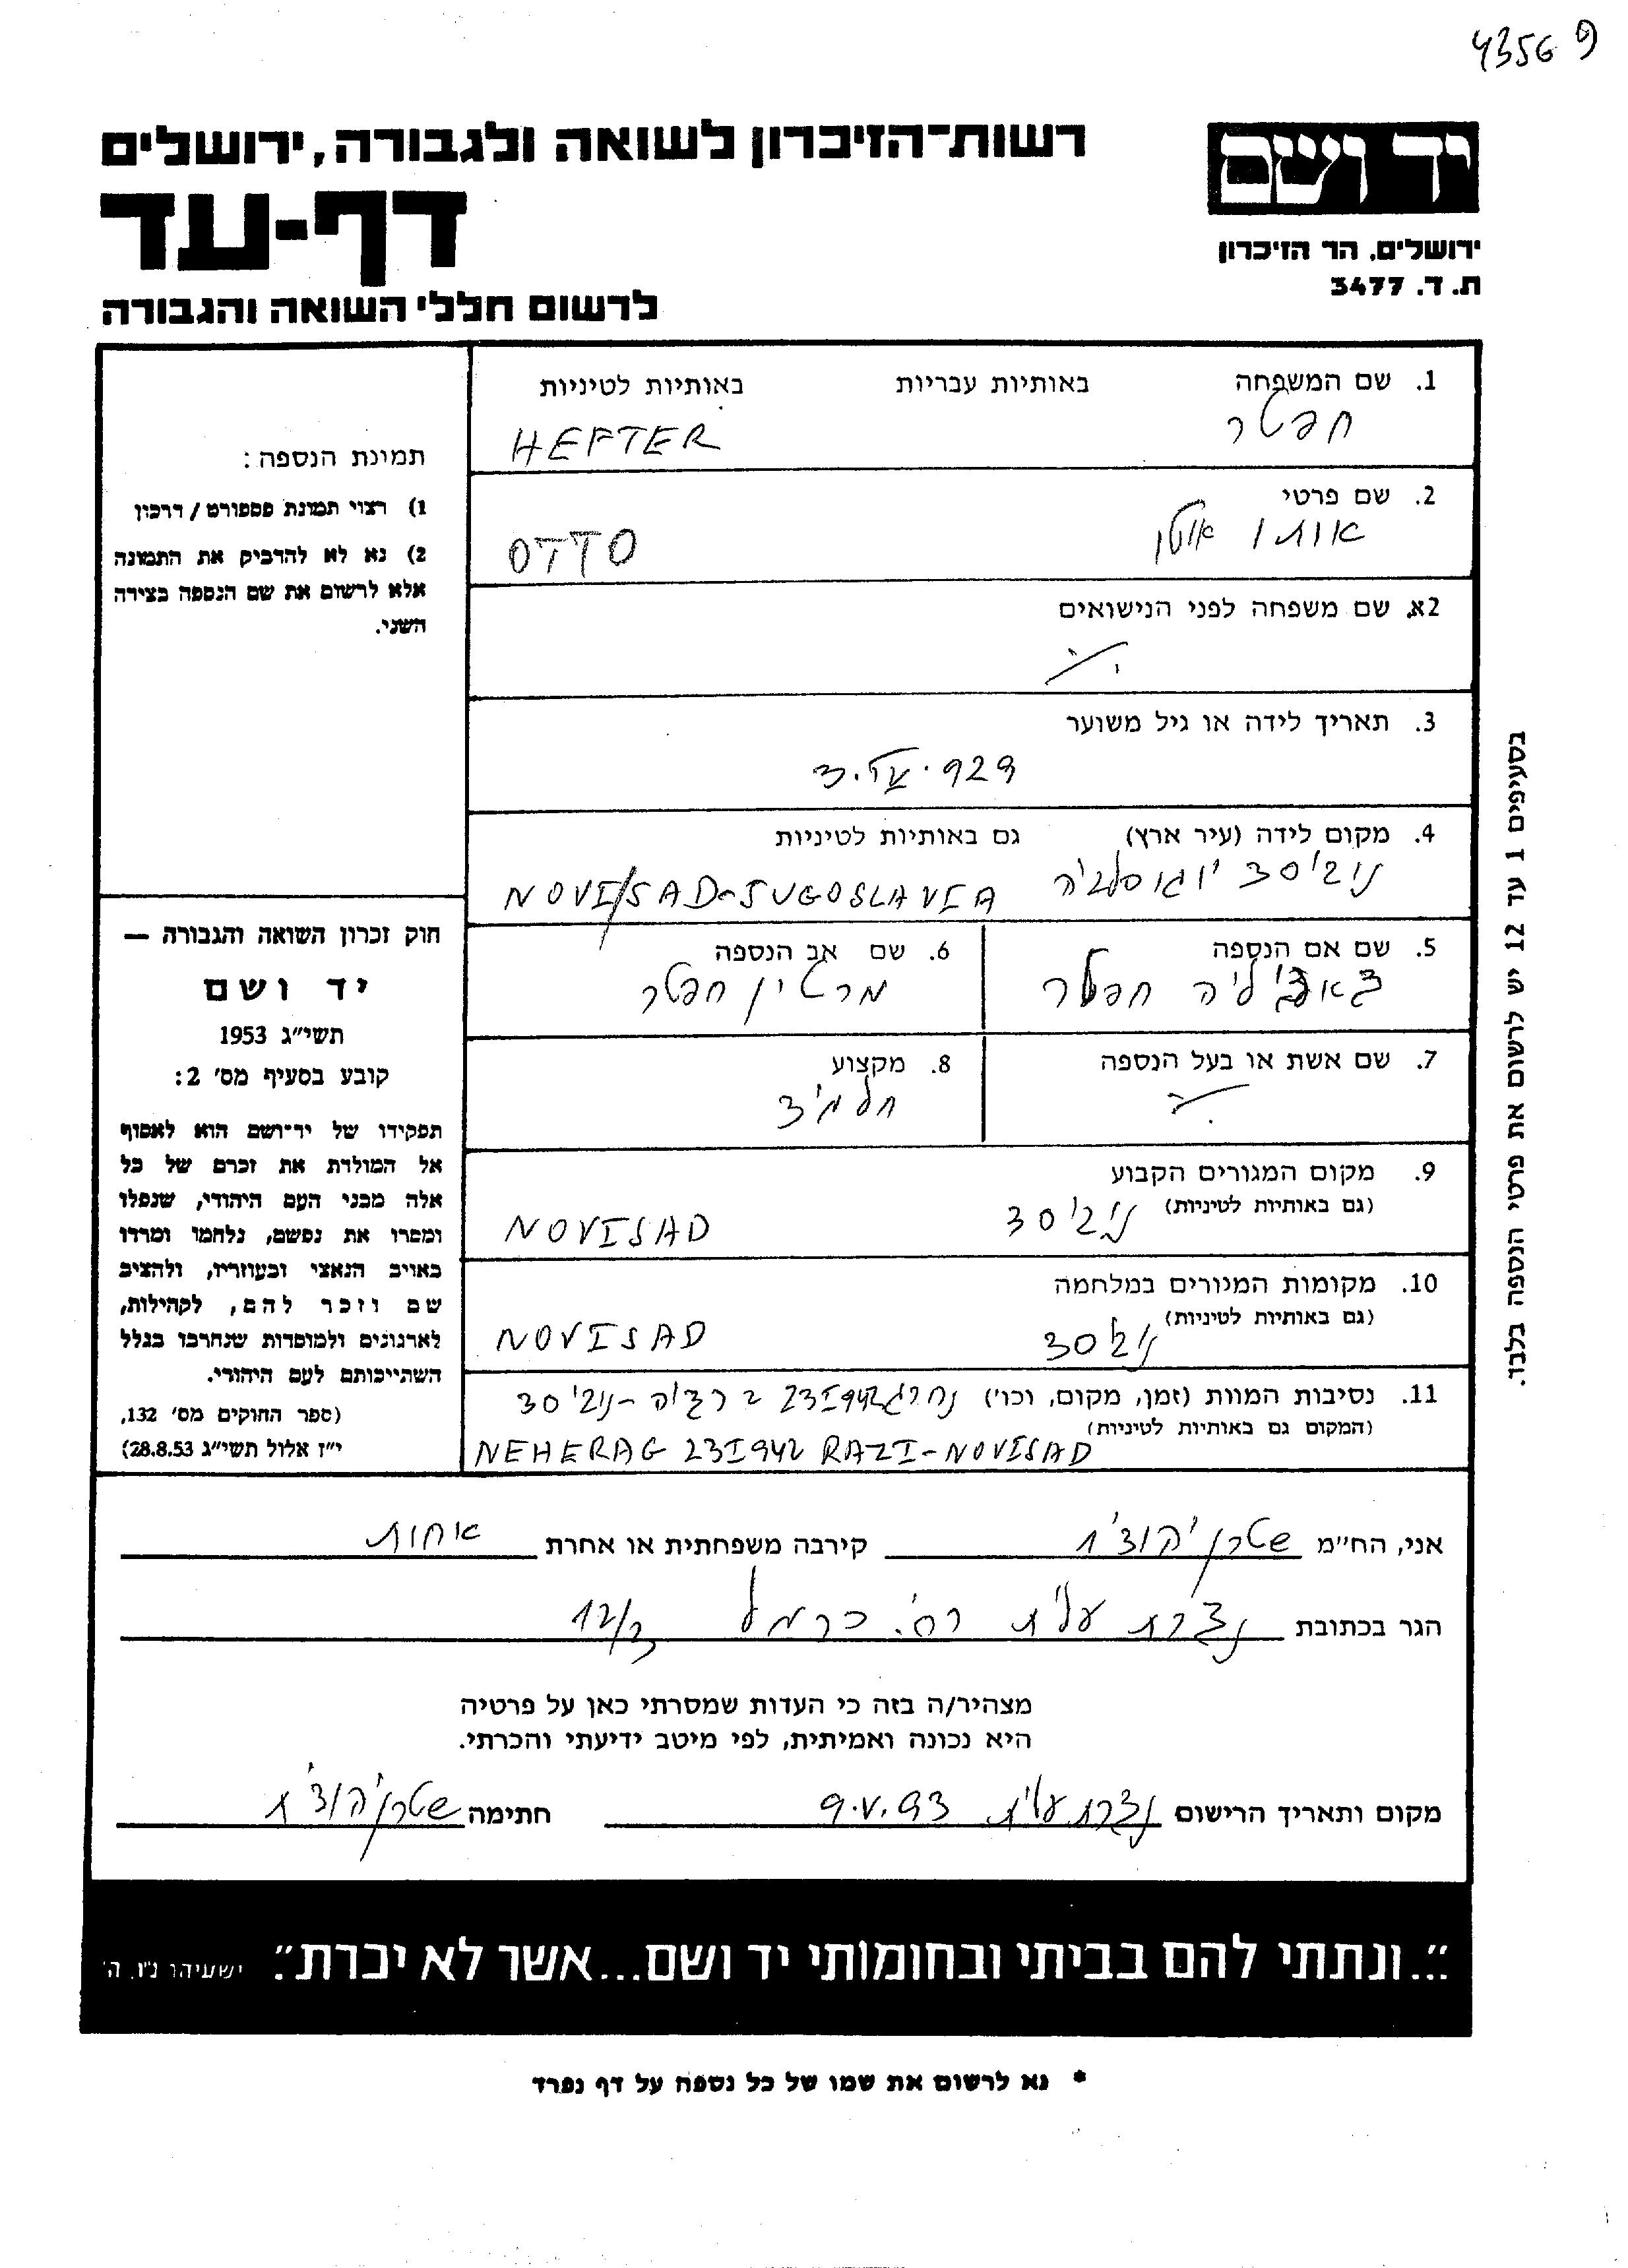 43569
רשות־הזיכרון לשואה ולגבורה, ירושלים
דף-עד
לרשום חללי השואה והגבורה
יד ושם
ירושלים, הר הזיכרון
ת. ד. 3477
תמונת הנספה:
1) רצוי תמונת פספורט / דרכון
2) נא לא להדביק את התמונה
אלא לרשום את שם הנספה בצידה
השני.
1. שם המשפחה באותיות עבריות באותיות לטיניות
חפטר HEFTER
2. שם פרטי
אותו OTTO
2א. שם משפחה לפני הנישואים
3. תאריך לידה או גיל משוער
4. מקום לידה (עיר ארץ) גם באותיות לטיניות
נוביסד יוגוסלביה NOVI/SAD-JUGOSLAVIA
5. שם אם הנספה
חפטר
6. שם אב הנספה
מרטין חפטר
7. שם אשת או בעל הנספה
8. מקצוע
תלמיד
9. מקום המגורים הקבוע
(גם באותיות לטיניות) נוביסד NOVISAD
10. מקומות המגורים במלחמה
(גם באותיות לטיניות)
נוביסד NOVISAD
11. נסיבות המוות (זמן, מקום, וכו') נהרג 23I942 ב רציה - נוביסד
(המקום גם באותיות לטיניות)
NEHERAG 23I942 RAZI-NOVISAD
חוק זכרון השואה והגבורה —
יד ושם
תשי"ג 1953
קובע בסעיף מס' 2:
תפקידו של יד־ושם הוא לאסוף
אל המולדת את זכרם של כל
אלה מבני העם היהודי, שנפלו
ומסרו את נפשם, נלחמו ומרדו
באויב הנאצי ובעוזריו, ולהציב
שם וזכר להם, לקהילות,
לארגונים ולמוסדות שנחרבו בגלל
השתייכותם לעם היהודי.
(ספר החוקים מס' 132,
י"ז אלול תשי"ג 28.8.53)
בסעיפים 1 עד 12 יש לרשום את פרטי הנספה בלבד.
אני, הח"מ שטרן יהודית קירבה משפחתית או אחרת אחות
הגר בכתובת נצרת עלית רח'. כרמל
מצהיר/ה בזה כי העדות שמסרתי כאן על פרטיה
היא נכונה ואמיתית, לפי מיטב ידיעתי והכרתי.
מקום ותאריך הרישום נצרת עלית 9.V.93 חתימה שטרן יהודית
"...ונתתי להם בביתי ובחומותי יד ושם...אשר לא יכרת". ישעיהו נ"ו, ה'
* נא לרשום את שמו של כל נספה על דף נפרד